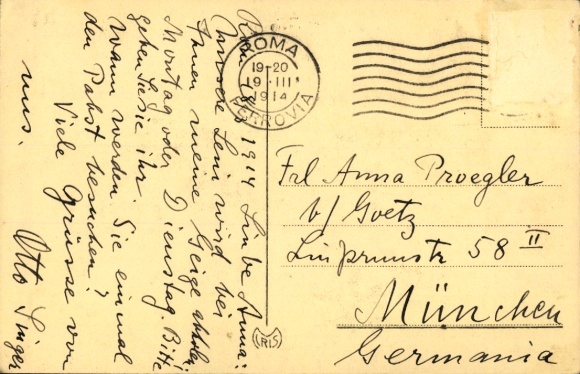 Rom 18 3 1914 Liebe Anna:
Unsere Leni wird bei
Ihnen meine Geige abholen
Montag oder Dienstag. Bitte
geben Sie sie ihr.
Wann werden Sie einmal
den Pabst besuchen?
Viele Grüsse von
uns.
Otto Singer
ROMA
19-20
19·III
1914
FERROVIA
Frl Anna Proegler
b/ Goetz
58 II
München
Germania
CRIS